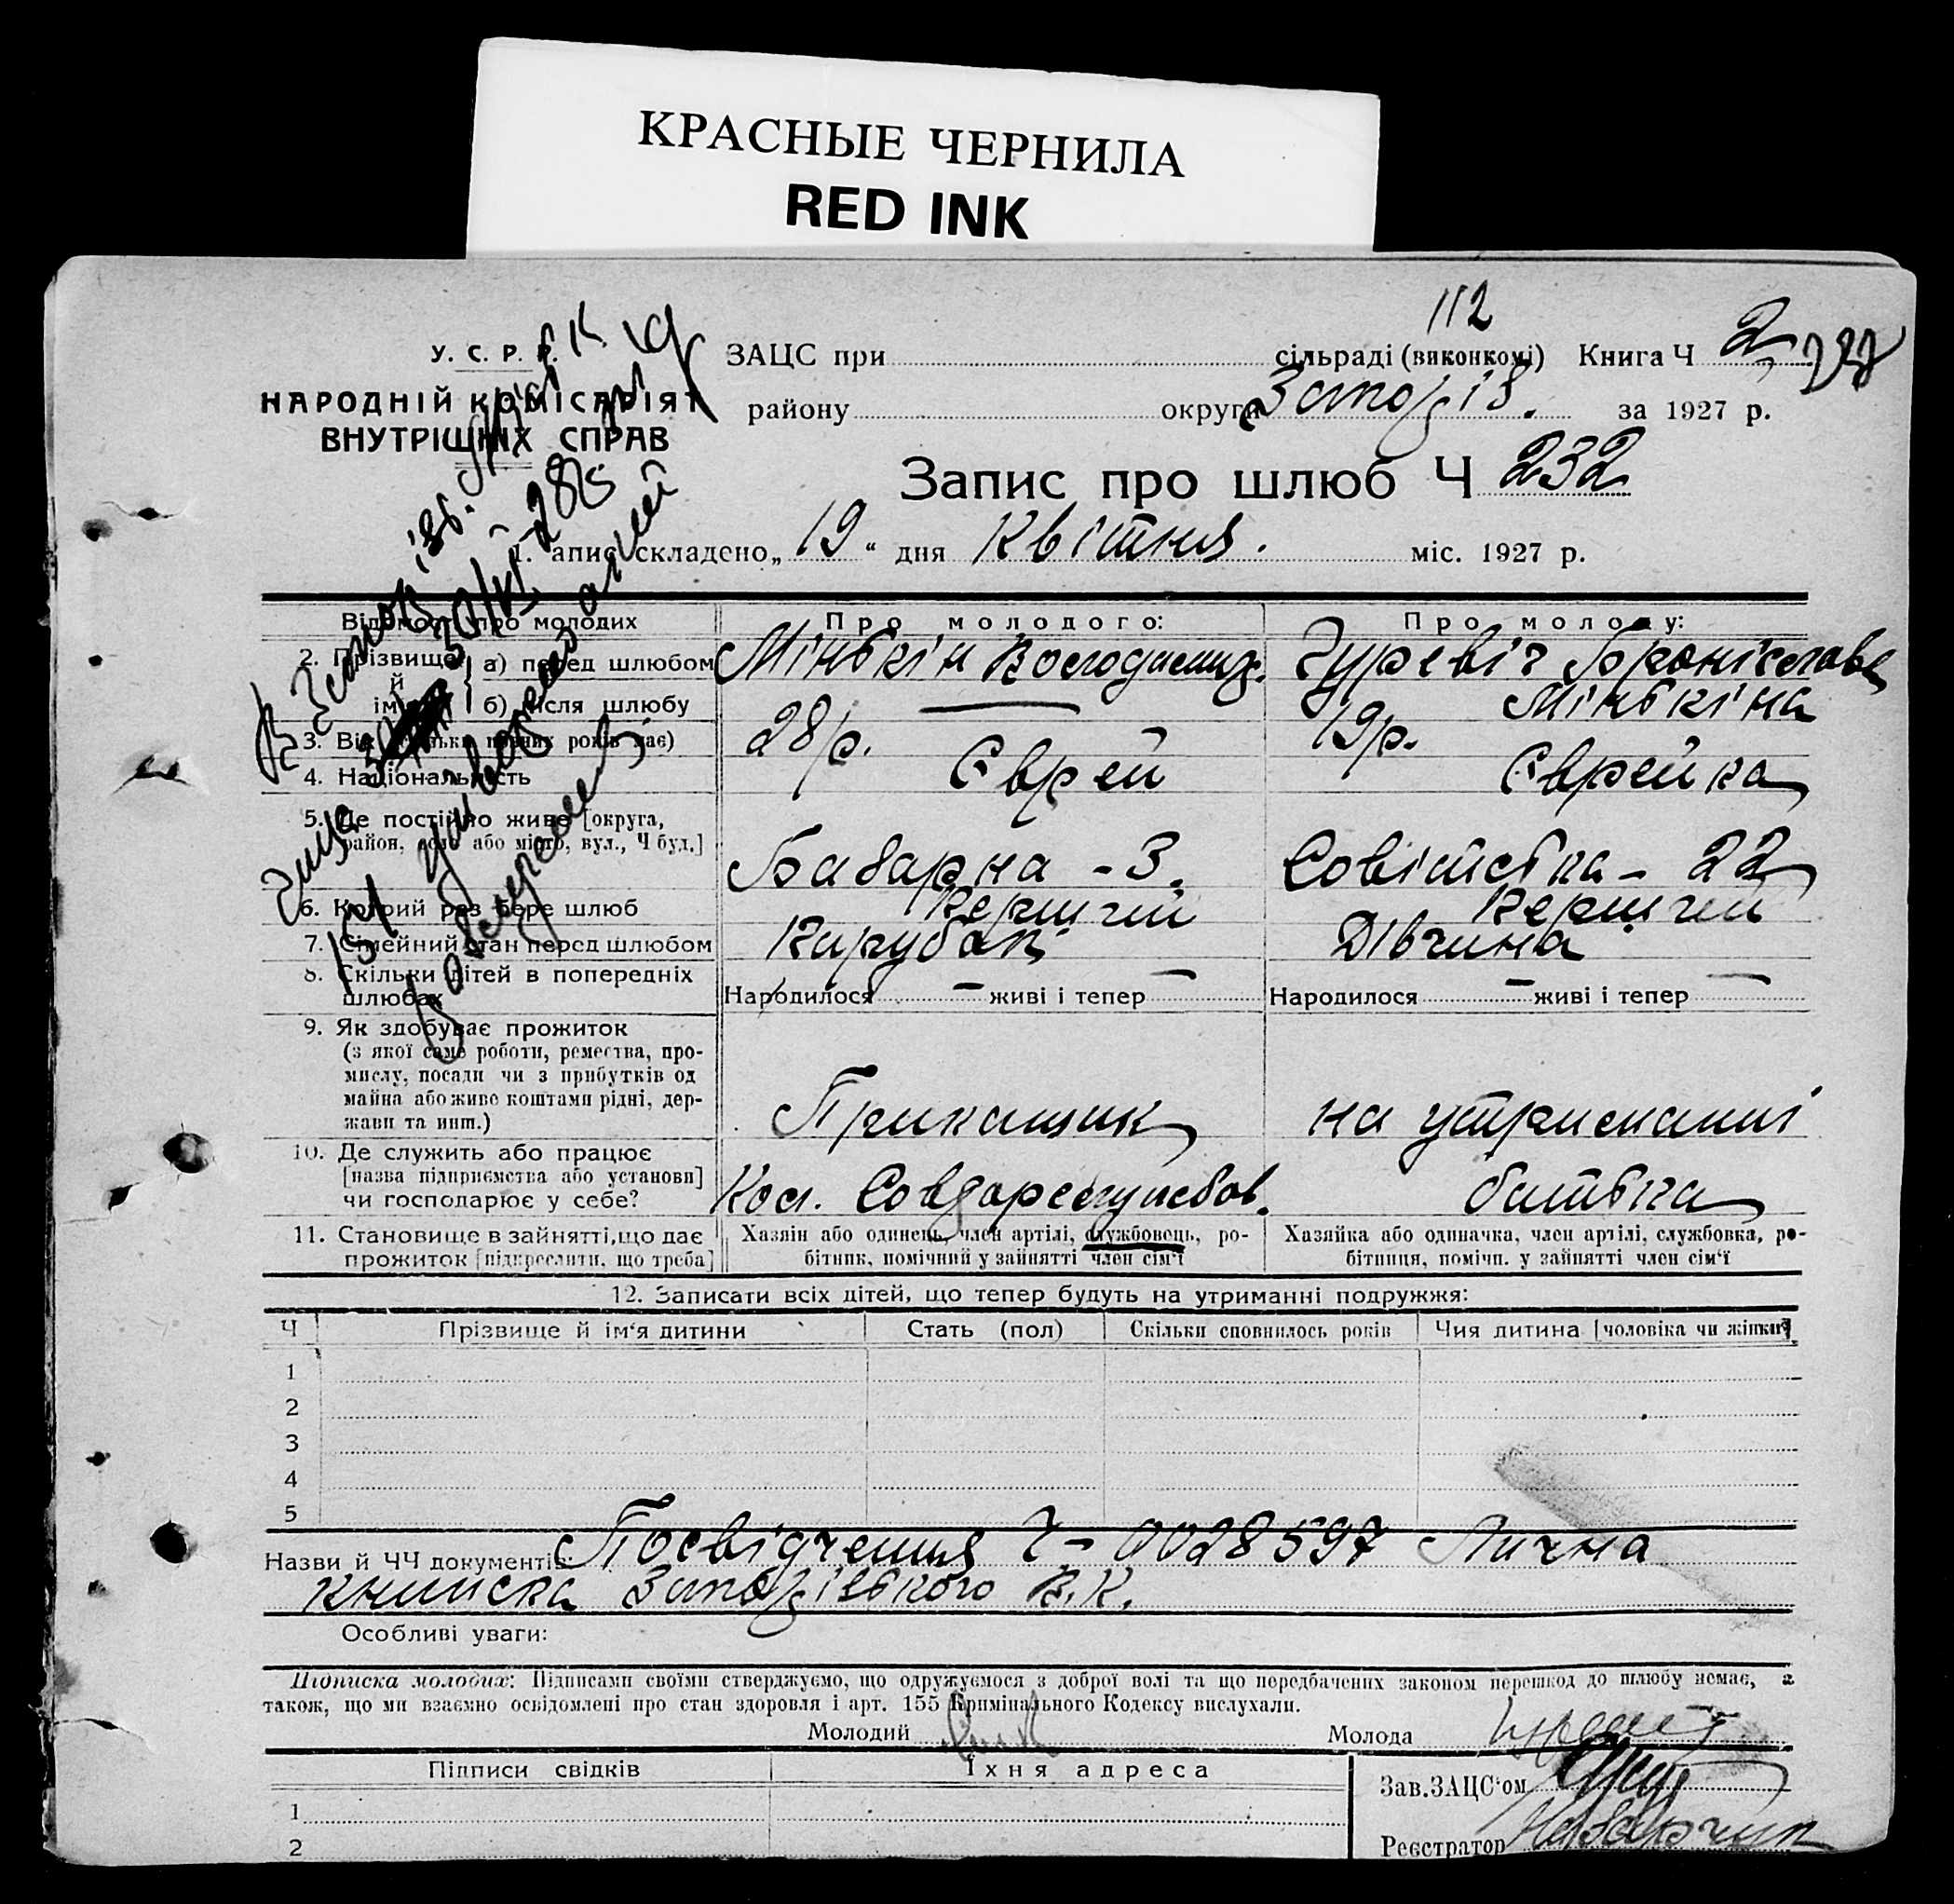 КРАСНЫЕ ЧЕРНИЛА
RED INK
112
У. С. Р. Р.
НАРОДНІЙ КОМІСАРІЯТ
ВНУТРІШНІХ СПРАВ
ЗАЦС при сільраді (виконкомі) Книга Ч 2
району округа Запоріз. за 1927 р.
Запис про шлюб Ч 232
1. апис складено „19“ дня Квітня. міс. 1927 р.
Відомості про молодих Про молодого: Про молоду:
2. Прізвище й ім'я
а) перед шлюбом Мінькін Володимир. Гуревіч Броніслава
б) після шлюбу — Мінькіна
3. Вік (скільки повних років має) 28 р. 19 р.
4. Національність Єврей Єврейка
5. Де постійно живе [округа,
район, село або місто, вул., Ч буд.] Базарна - 3. Совітська - 22
6. Котрий раз бере шлюб Перший Перший
7. Сімейний стан перед шлюбом Парубок Дівчина
8. Скільки дітей в попередніх
шлюбах Народилося — живі і тепер — Народилося — живі і тепер —
9. Як здобуває прожиток
(з якої саме роботи, ремества, про-
мислу, посади чи з прибутків од
майна або живе коштами рідні, дер-
жави та инш.) Прикащик на утриманні
10. Де служить або працює
[назва підприємства або установи]
чи господарює у себе? батька
11. Становище в зайнятті, що дає
прожиток [підкреслити, що треба]
Хазяін або одинець, член артілі, службовець, ро-
бітник, помічний у зайнятті член сім'ї
Хазяйка або одиначка, член артілі, службовка, ро-
бітниця, помічн. у зайнятті член сім'ї
12. Записати всіх дітей, що тепер будуть на утриманні подружжя:
Ч Прізвище й ім'я дитини Стать (пол) Скільки сповнилось років Чия дитина [чоловіка чи жінки]
1
2
3
4
5
Назви й ЧЧ документів: Посвідчення Ч - 0028597 Лична
книжка Запорізького В.К.
Особливі уваги:
Підписка молодих: Підписами своїми стверджуємо, що одружуємося з доброї волі та що передбачених законом перешкод до шлюбу немає, а
також, що ми взаємно освідомлені про стан здоровля і арт. 155 Кримінального Кодексу вислухали.
Молодий Молода
Підписи свідків Їхня адреса
Зав. ЗАЦС'ом
1
2
Реєстратор